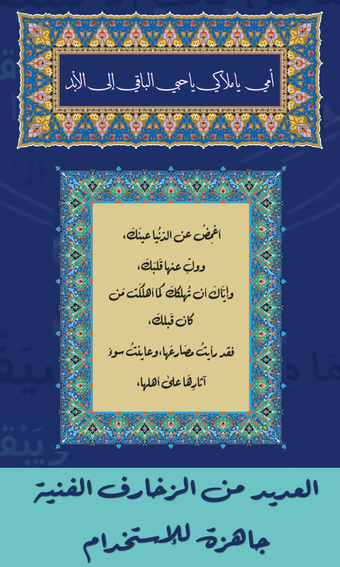 أمي يا ملاكي يا حبي الباقي إلى الأبد
أغمِضْ عن الدّنُيا عينَكَ،
وولِّ عنها قَلبَكَ،
وإيَّاكَ أن تُهلككَ كما أهلكَت مَن
كان قَبلكَ،
فقد رأيتُ مصَارعَها، وعاينْتُ سوءَ
آثارِها علىٰ أهلها،
العديد من الزخارف الفنية
جاهزة للإستخدام